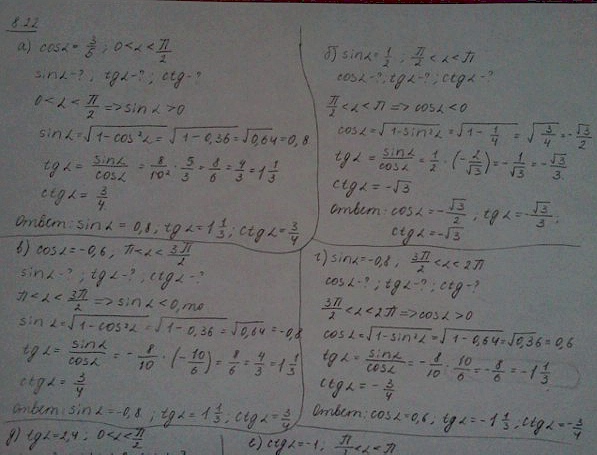 822
а) cosα = 3/5 ; 0<α<π/2
sinα-? ; tgα-? ; ctg-?
0<α<π/2 => sinα>0
sinα=√1-cos²α = √1-0,36 = √0,64 = 0,8
tgα = sinα/cosα = 8/10 · 5/3 = 8/6 = 4/3 = 1 1/3
ctgα = 3/4
Ответ: sinα = 0,8, tgα=1 1/3; ctgα=3/4
б) sinα=1/2 ; π/2<α<π
cosα-?; tgα-? ; ctgα-?
π/2<α<π => cosα<0
cosα=√1-sin²α = √1-1/4 = √3/4 = -√3/2
tgα = sinα/cosα = 1/2 · (-2/√3) = -1/√3 = -√3/3.
ctgα = -√3
Ответ: cosα = -√3/2 ; tgα = -√3/3 ;
ctgα = -√3
в) cosα=-0,6, π<α<3π/2
sinα-? ; tgα-? ; ctgα-?
π<α<3π/2 => sinα<0, то
sinα=√1-cos²α = √1-0,36 = √0,64 = -0,8
tgα = sinα/cosα = -8/10 · (-10/6) = 8/6 = 4/3 = 1 1/3
ctgα = 3/4
Ответ: sinα=-0,8 , tgα=1 1/3; ctgα=3/4
г) sinα=-0,8, 3π/2<α<2π
cosα-? ; tgα-? ; ctg-?
3π/2<α<2π => cosα>0
cosα=√1-sin²α = √1-0,64 = √0,36 = 0,6
tgα = sinα/cosα = -8/10 · 10/6 = -8/6 = -1 1/3
ctgα = -3/4
Ответ: cosα=0,6, tgα=-1 1/3, ctgα=-3/4
д) tgα=2,4 ; 0<α<π/2
е) ctgα=-1; π/2<α<π